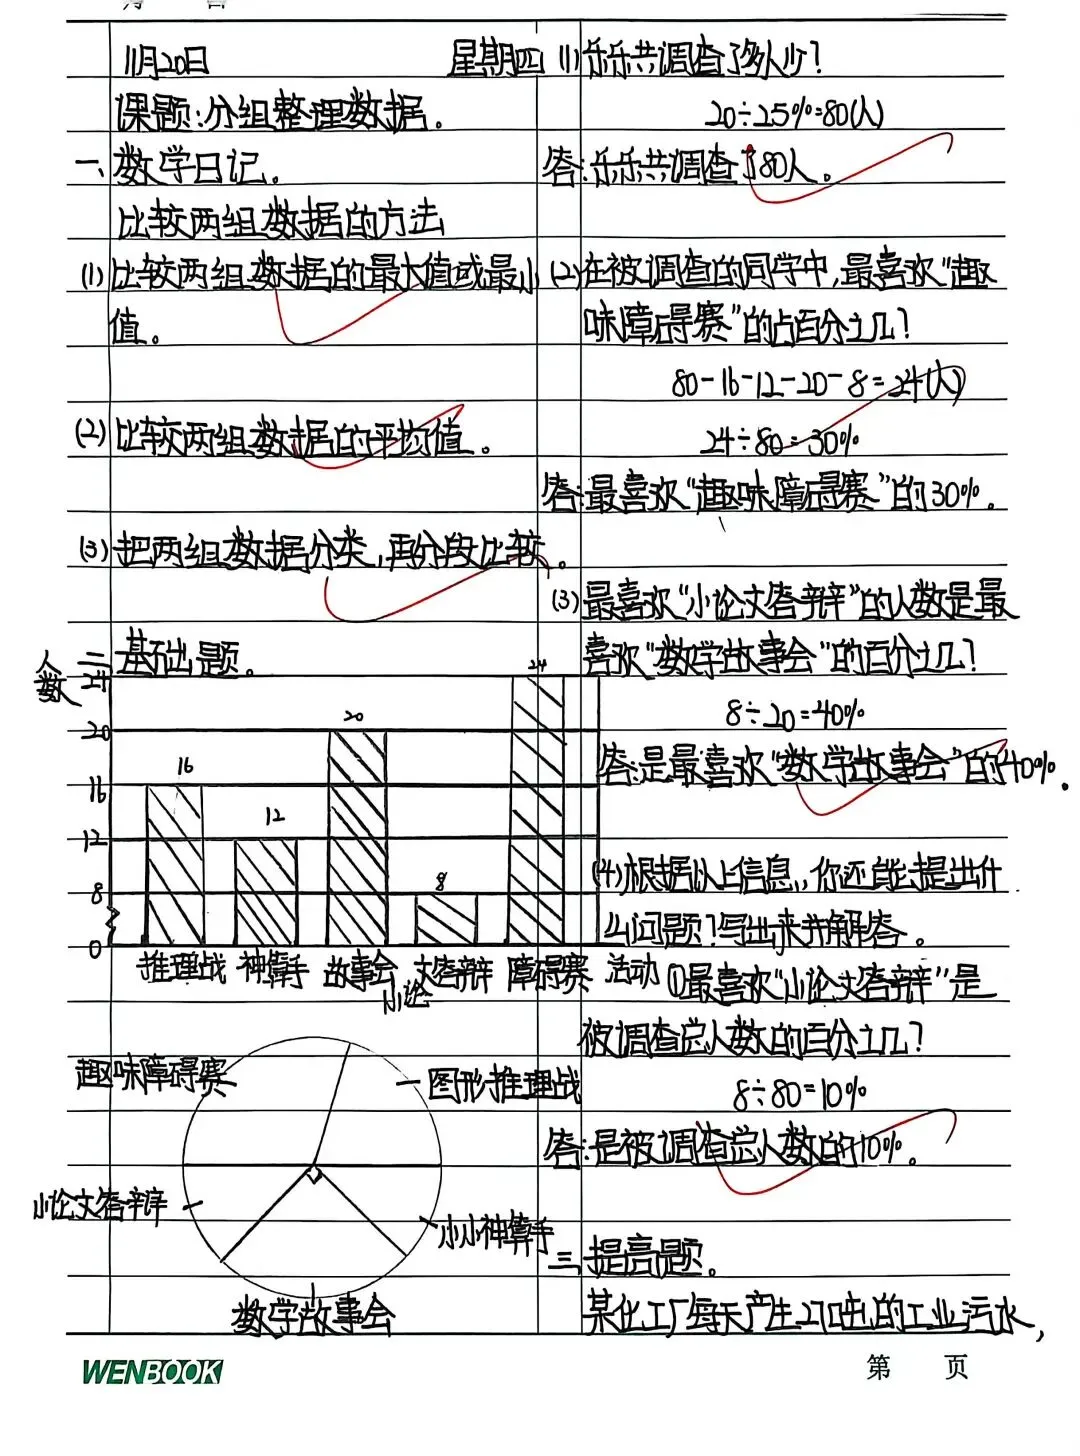 11月20日 星期四
课题:分组整理数据。
一、数学日记。
比较两组数据的方法
(1)比较两组数据的最大值或最小
值。
(2)比较两组数据的平均值。
(3)把两组数据分类,再分段比较。
二 基础题。
人数
24
20
16
12
8
0
16
12
20
8
24
推理战 神算手 故事会 小论文答辩 障碍赛 活动
趣味障碍赛
图形推理战
小论文答辩
小小神算手
数学故事会
(1)乐乐共调查了多人少?
20÷25%=80(人)
答:乐乐共调查了80人。
(2)在被调查的同学中,最喜欢“趣
味障碍赛”的占百分之几?
80-16-12-20-8=24(人)
24÷80=30%
答:最喜欢“趣味障碍赛”的30%。
(3)最喜欢“小论文答辩”的人数是最
喜欢“数学故事会”的百分之几?
8÷20=40%
答:是最喜欢“数学故事会”的40%。
(4)根据以上信息,你还能提出什
么问题?写出来并解答。
①最喜欢“小论文答辩”是
被调查总人数的百分之几?
8÷80=10%
答:是被调查总人数的10%。
三 提高题。
某化工厂每天产生270吨的工业污水,
WENBOOK
第 页